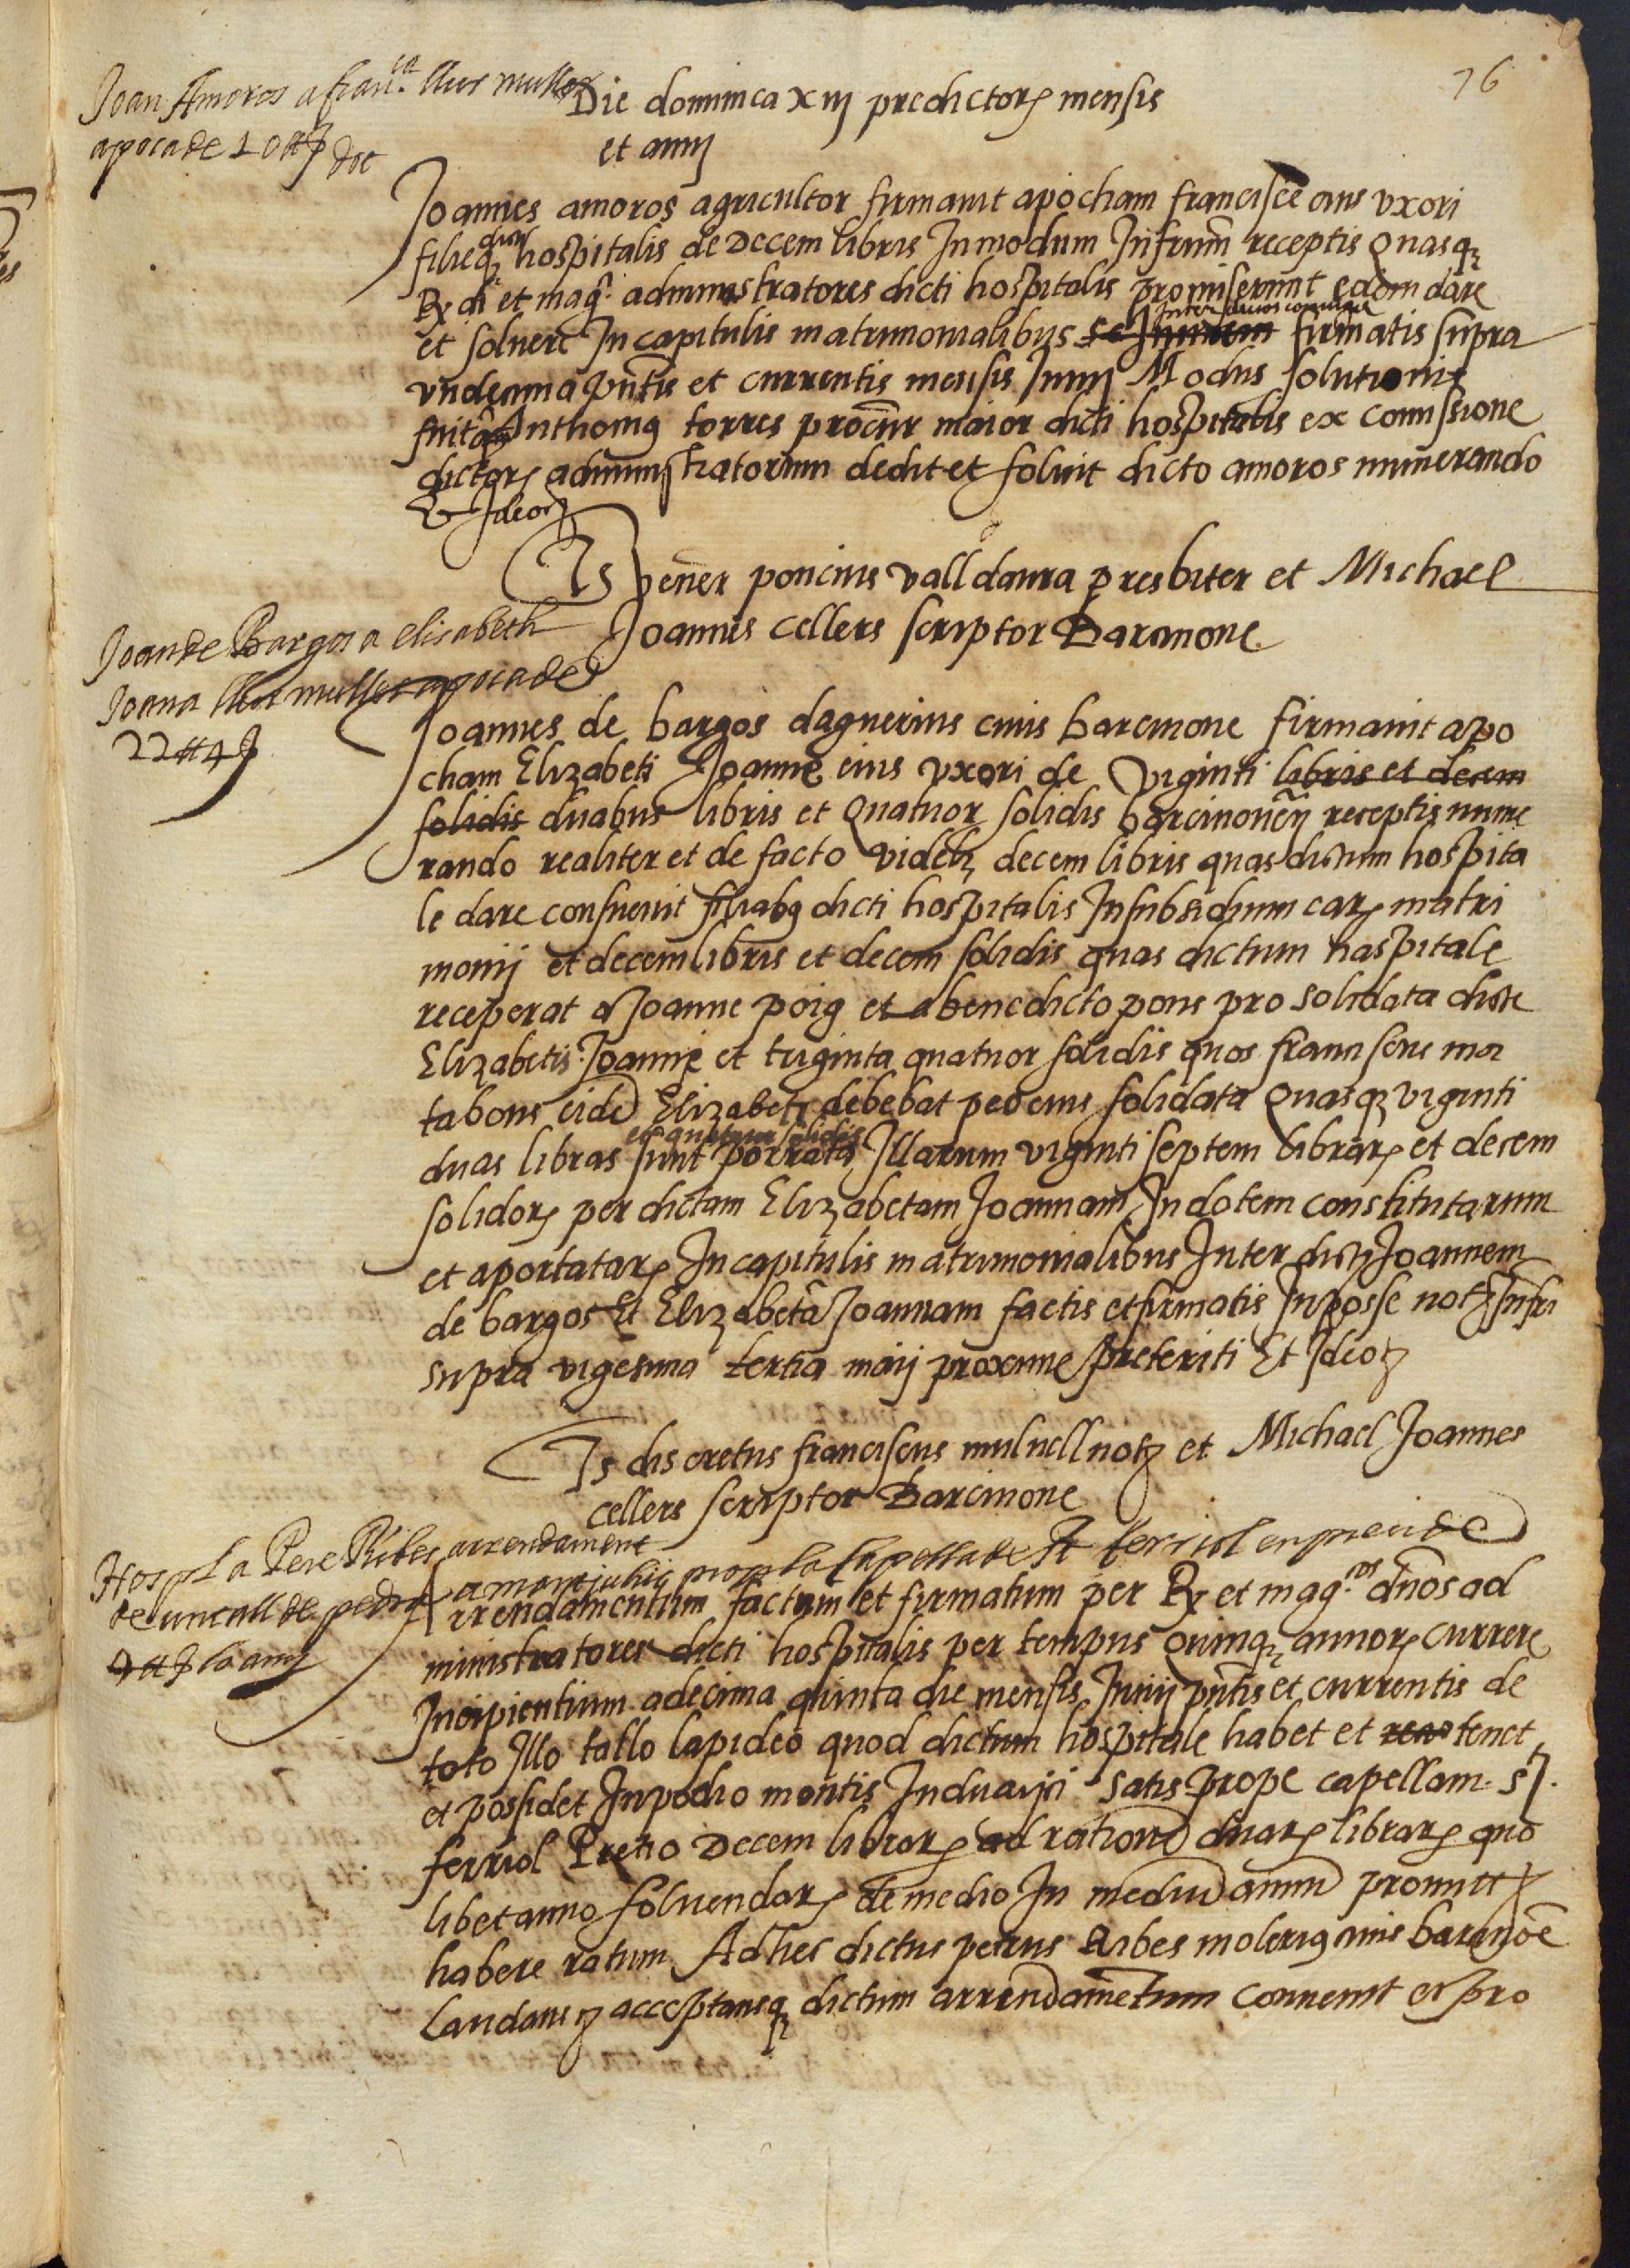 76
Joan Amoros a fran.ca llur muller
apoca de 10 ℔ ꝭ dot
Die dominica xiij predictorꝝ mensis
et anni
Joannes amoros agricultor firmavit apocham francisce eius uxori
filieqꝫ dicti hospitalis de Decem libris In modum Infrum receptis Quasqꝫ
Rx di et magci administratores dicti hospitalis promiserunt eidem dare
et solvere In capitulis matrimonialibus Inter dictos coniuges firmatis supra
undecima pntis et currentis mensis Junij Modus solutionis
fuit Anthonius torres procur maior dicti hospitalis ex comissione
dictorꝝ administratorum dedit et solvit dicto amoros numerando
Et Ideo ꝛ
Ts vener poncius valldaura presbiter et Michael
Joannis cellers scriptor Barcinone
Joan de Bargos a elisabeth
Joana llur muller apoca de
22 ℔ 4 ꝭ
Joannes de bargos daguerius civis barcinone firmavit apo
cham Elizabeti Joanne eius uxori de viginti libris et decem
solidis duabus libris et Quatuor solidis barcinonen receptis nume
rando realiter et de facto videlꝫ decem libris quas dictum hospita
le dare consuevit filiabꝰ dicti hospitalis In subsidium earꝝ matri
monij et decem libris et decem solidis quas dictum hospitale
receperat a Joanne poig et a benedicto pons pro solidata dicte
Elizabetis Joanne et triginta quatuor solidis quos franciscus ma
tabous eidē Elizabeti debebat pro eius solidata Quasqꝫ viginti
duas libras et quatuor solidis sunt porrata Illarum viginti septem librarꝝ et decem
solidorꝝ per dictam Elizabetam Joannam In dotem constitutarum
et aportatarꝝ In capitulis matrimonialibus Inter dictos Joannem
de bargos Et Elizabetā Joannam factis et firmatis In posse notꝫ Infri
supra vigesima tertia maij proxime preteriti Et Ideo ꝛ
Ts discretus franciscus mulnell notꝫ et Michael Joannes
cellers scriptor Barcinone
Hospl a Pere Ribes arrendament
de un tall de pedra a montjuhic prop la capella de St ferriol en preu de
2 ℔ ꝭ lo any
Arrendamentum factum et firmatum per Rx et mag.cos dnos ad
ministratores dicti hospitalis per tempus Quinqꝫ annorꝝ currere
Incipientium a decima quinta die mensis Junij pntis et currentis de
toto Illo tallo lapideo quod dictum hospitale habet et tenet
et possidet In podio montis Judayci satis prope capellam Sti
ferriol Pretio Decem librarꝝ ad rationē duarꝝ librarꝝ quo
libet anno solvendarꝝ de medio In mediū annū promitt
habere ratum Ad hec dictus petrus Ribes molerius civis barcinōe
Laudans ꝛ acceptansqꝫ dictum arrendamentum convenit et pro